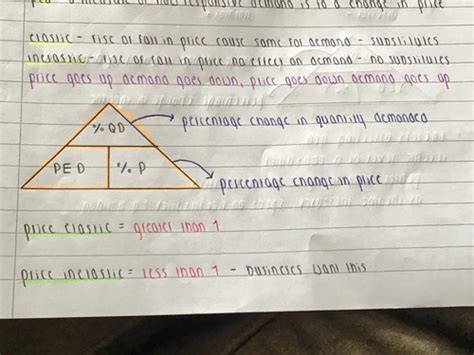 PED - a measure of how responsive demand is to a change in price
elastic - rise or fall in price cause same for demand - substitutes
inelastic - rise or fall in price no effect on demand - no substitutes
price goes up demand goes down, price goes down demand goes up
% QD
percentage change in quantity demanded
PED
% P
percentage change in price
price elastic = greater than 1
price inelastic = less than 1 - businesses want this